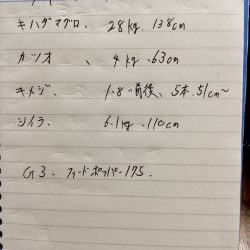 キハダマグロ、28kg、138cm
カツオ、4kg、63cm
キメジ、1.8前後、5本、51cm〜
シイラ、6.1kg、110cm
G3、フィードポッパー175.